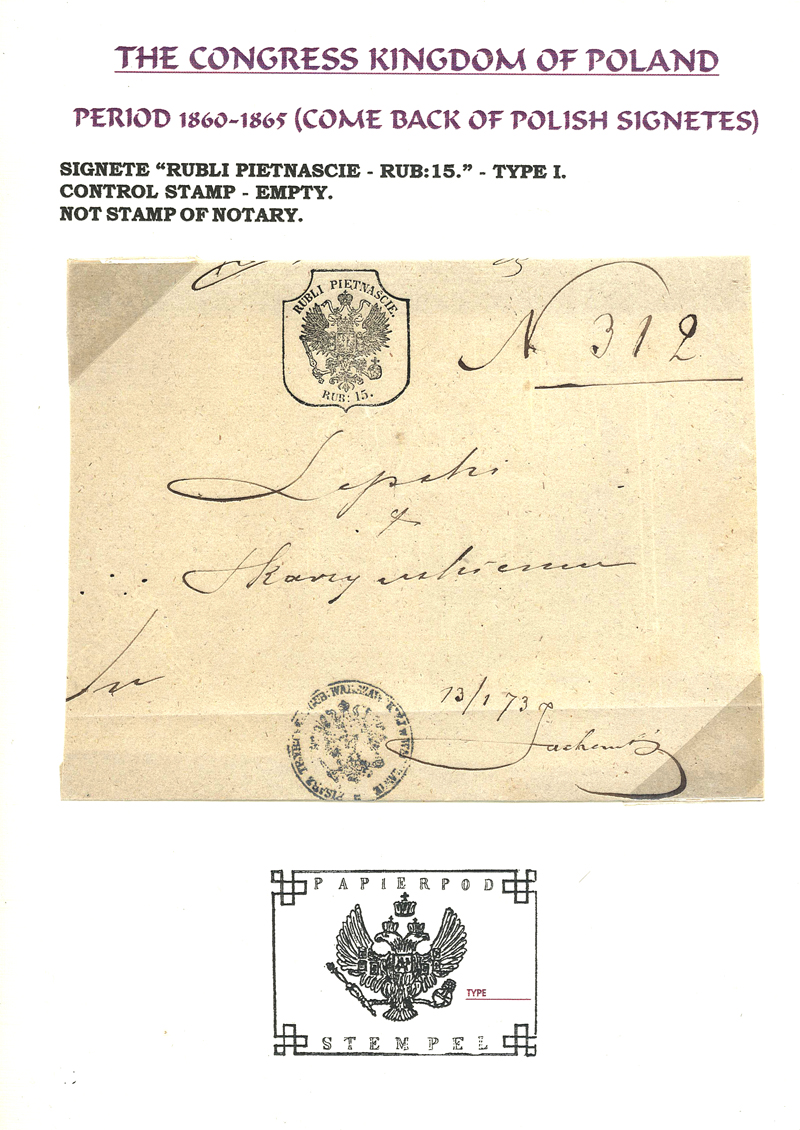 THE CONGRESS KINGDOM OF POLAND
PERIOD 1860-1865 (COME BACK OF POLISH SIGNETES)
SIGNETE “RUBLI PIETNASCIE - RUB:15.” - TYPE I.
CONTROL STAMP - EMPTY.
NOT STAMP OF NOTARY.
RUBLI PIĘTNAŚCIE.
RUB: 15.
N 312
Lepski
Skarzynskiemu
13/1 73
GUB: WARSZAW
PISARZ TRYB
PAPIER POD
TYPE
STEMPEL